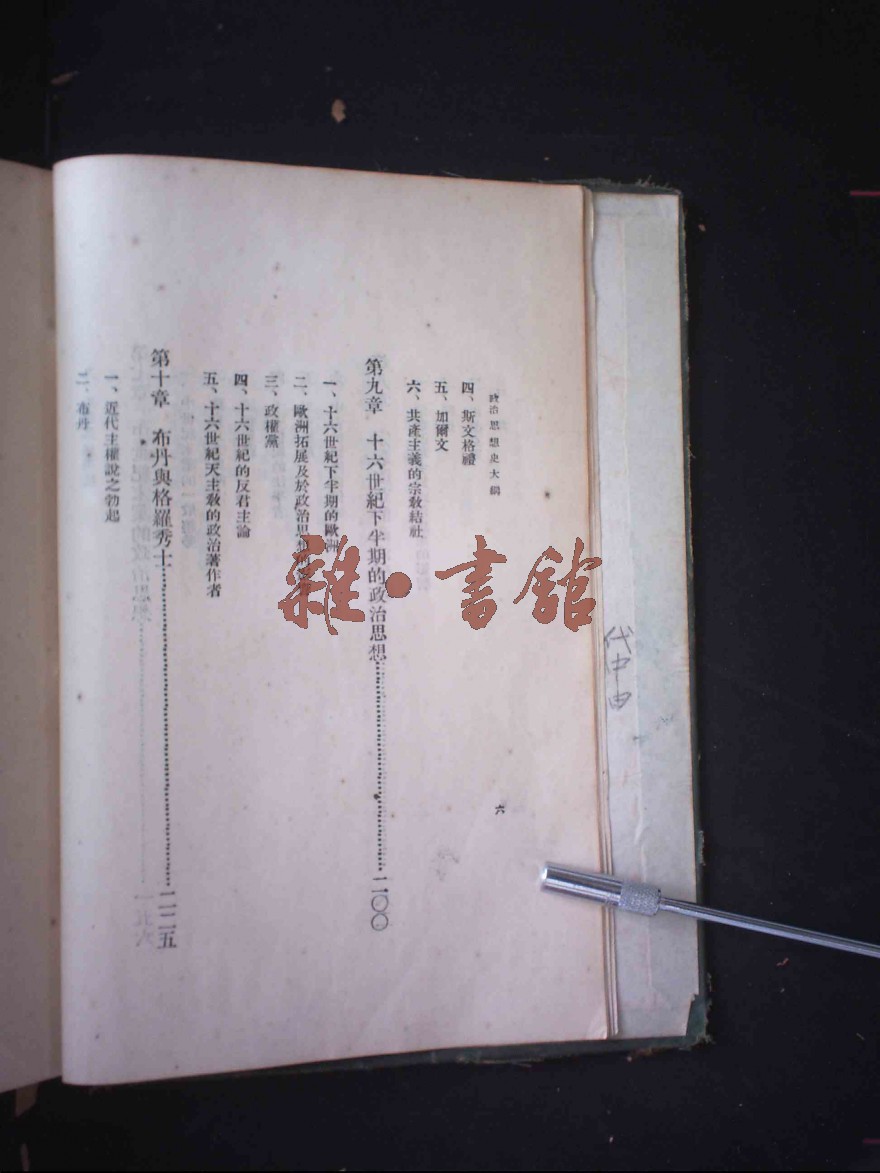 政治思想史大綱
六
四、斯文格禮
五、加爾文
六、共產主義的宗教結社
第九章 十六世紀下半期的政治思想……二〇〇
一、十六世紀下半期的歐洲
二、歐洲拓展及於政治思想
三、政權黨
四、十六世紀的反君主論
五、十六世紀天主教的政治著作者
第十章 布丹與格羅秀士……二二五
一、近代主權說之勃起
二、布丹
雜·書館
代中由